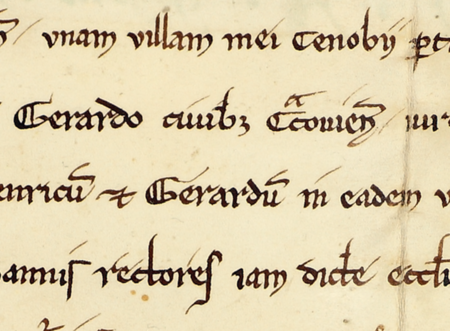 vnam villam mei Cenobij
Gerardo ciuibꝫ Cͣcouien̄
enricū ⁊ Gerardū in eadem
annis rectores iam dicte